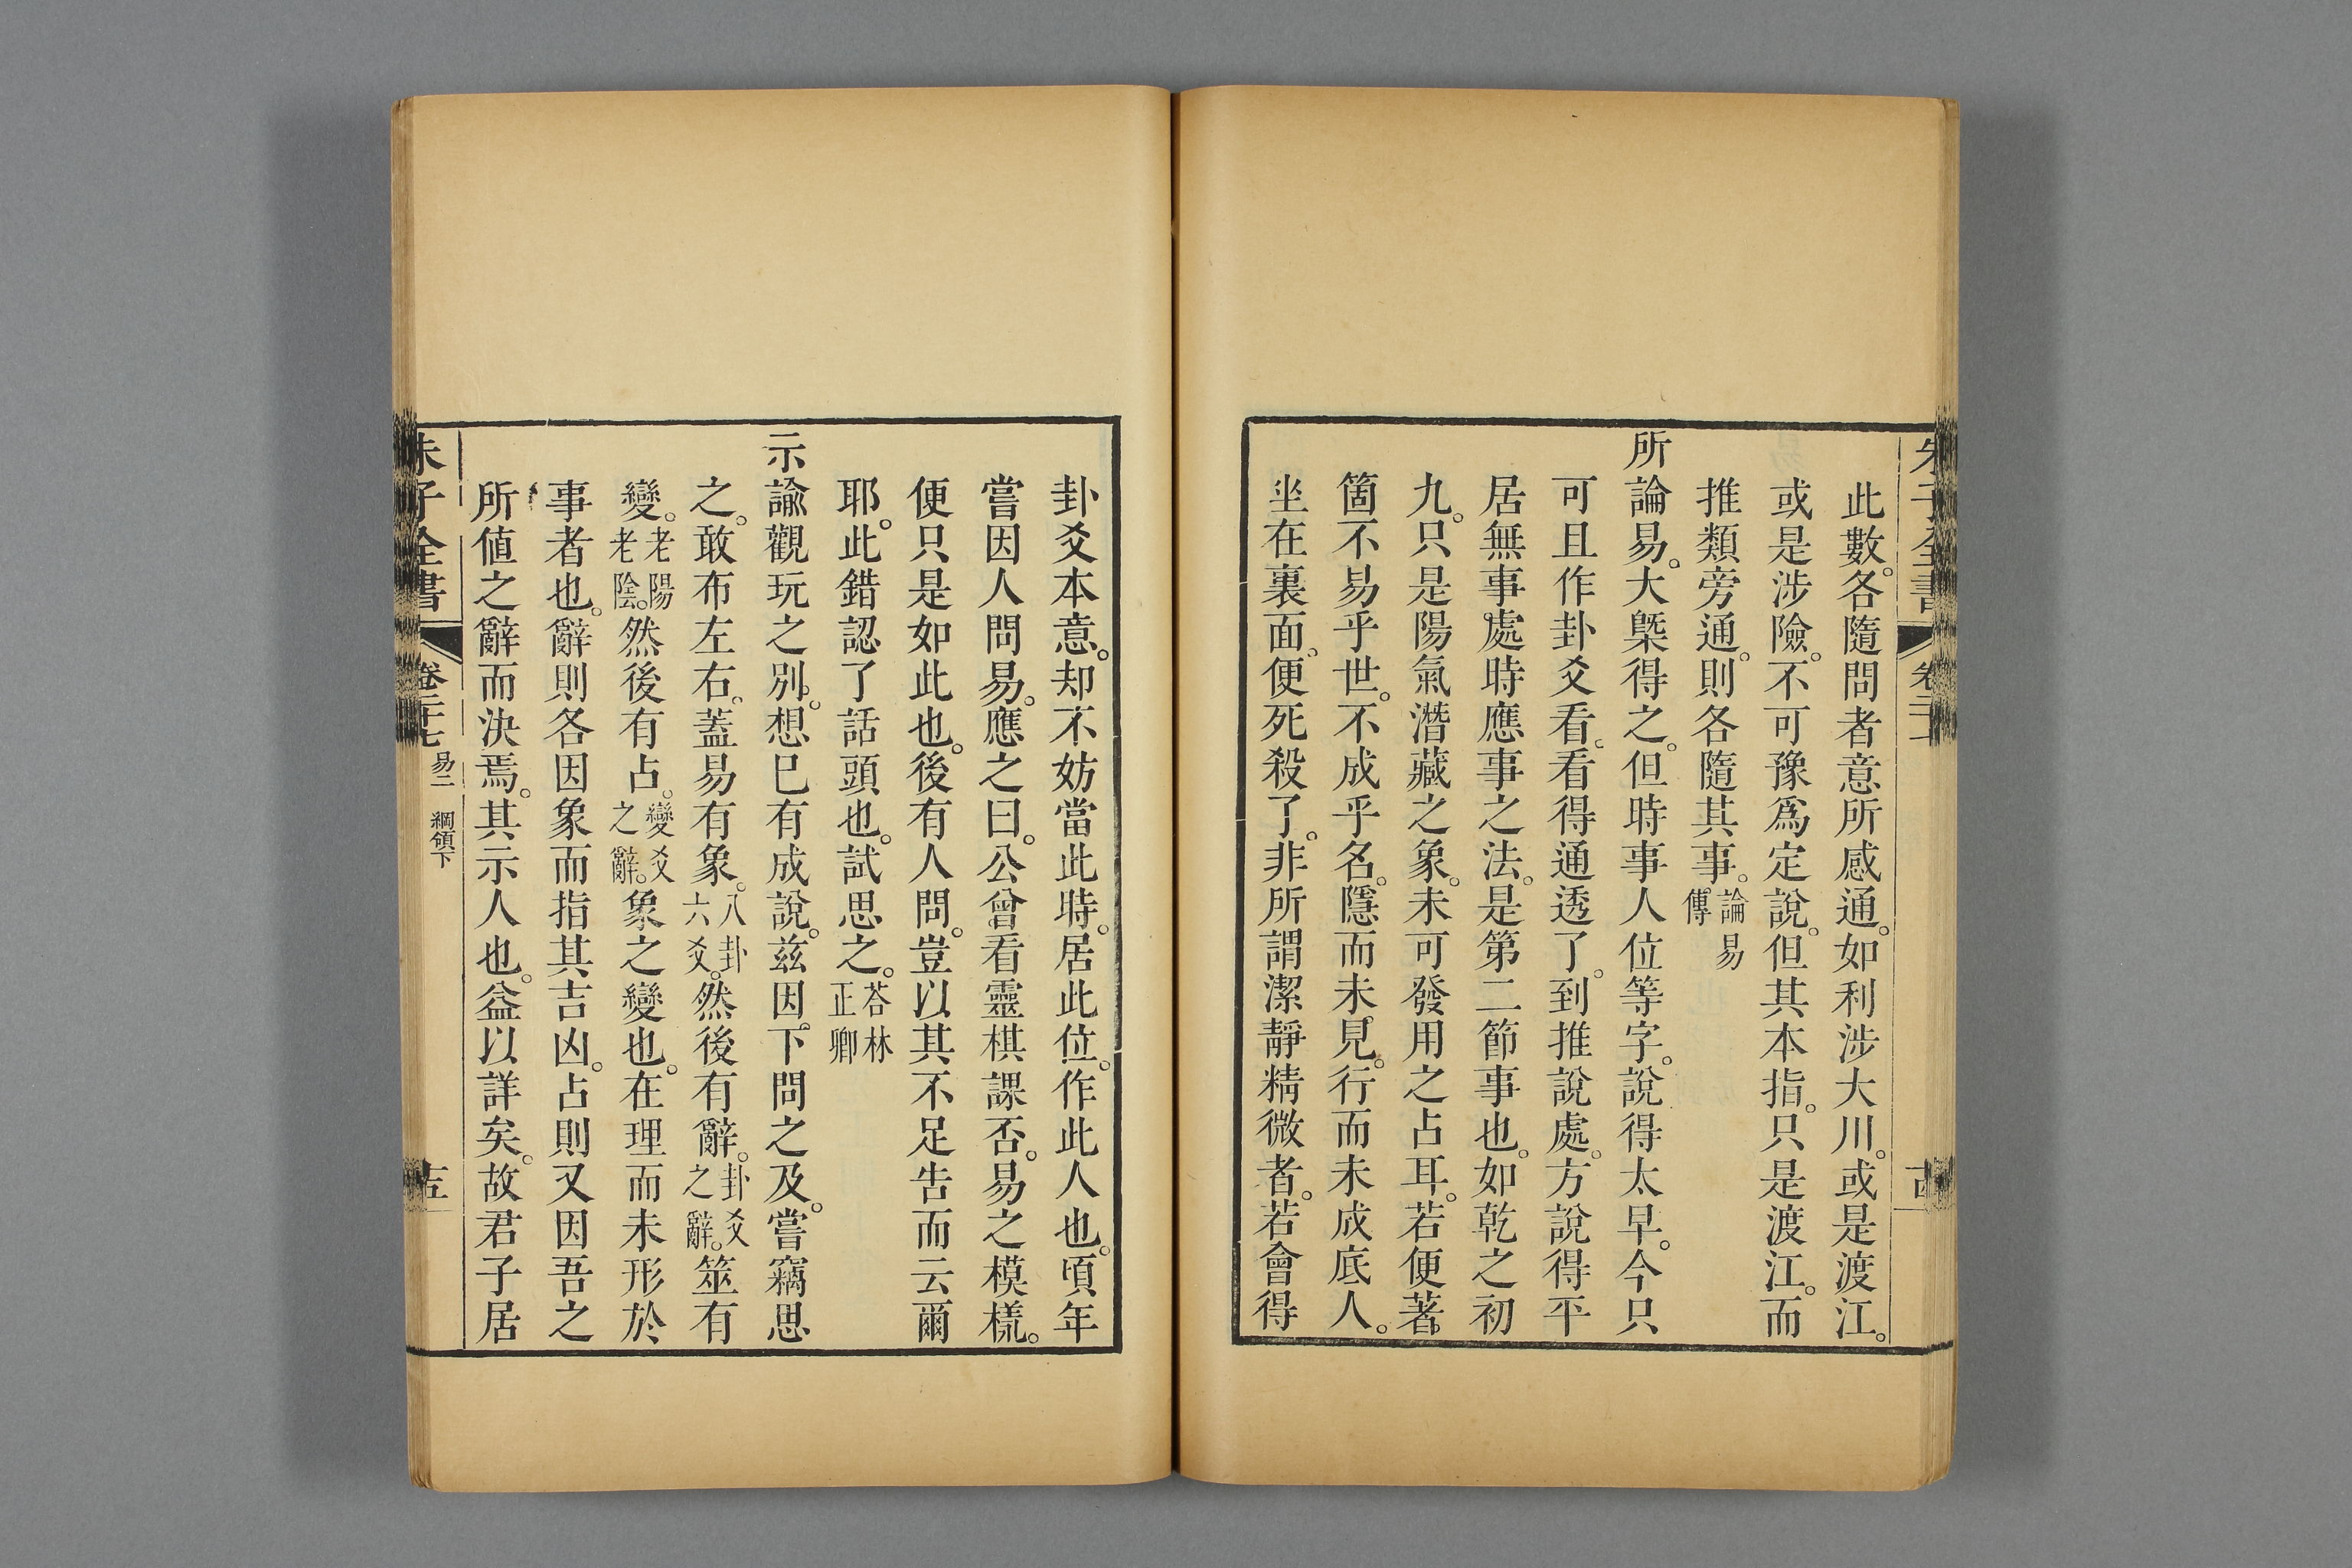 此數。各隨問者意所感通。如利涉大川。或是渡江。
或是涉險。不可豫爲定說。但其本指。只是渡江。而
推類旁通。則各隨其事。論易傳。
所論易。大槩得之。但時事人位等字。說得太早。今只
可且作卦爻看。看得通透了。到推說處。方說得平
居無事處時應事之法。是第二節事也。如乾之初
九。只是陽氣潛藏之象。未可發用之占耳。若便著
箇不易乎世。不成乎名。隱而未見。行而未成底人。
坐在裏面。便死殺了。非所謂潔靜精微者。若會得
卦爻本意。却不妨當此時。居此位。作此人也。頃年
嘗因人問易。應之曰。公曾看靈棋課否。易之模樣。
便只是如此也。後有人問。豈以其不足告而云爾
耶。此錯認了話頭也。試思之。荅林正卿
示諭觀玩之別。想已有成說。茲因下問之及。嘗竊思
之。敢布左右。蓋易有象。八卦六爻。然後有辭。卦爻之辭。筮有
變。老陽老陰。然後有占。變爻之辭。象之變也。在理而未形於
事者也。辭則各因象而指其吉凶。占則又因吾之
所値之辭而決焉。其示人也。益以詳矣。故君子居
朱子全書 卷二十七 易二 綱領下